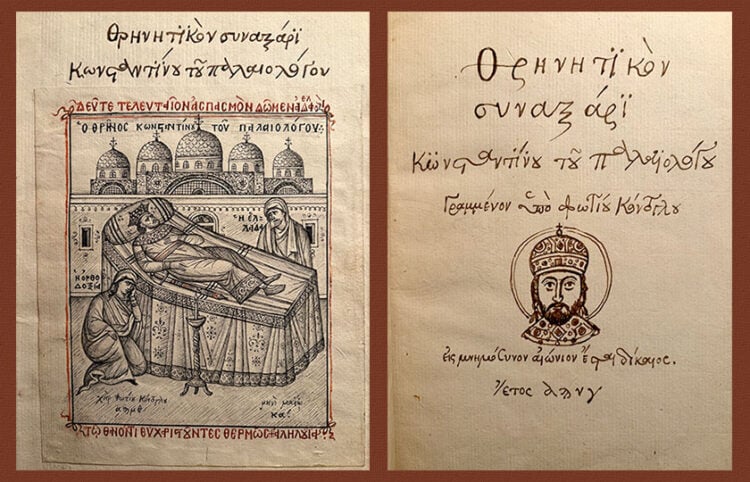 Θρηνητικὸν συναξάρι
Κωνσταντίνου τοῦ Παλαιολόγου
ΔΕῦΤΕ ΤΕΛΕΥΤΑῖΟΝ ἈΣΠΑΣΜῸΝ ΔῶΜΕΝ ἈΔΕΛΦΟΙ
Ὁ ΘΡῆΝΟΣ ΚΩΝΣΤΑΝΤΙΝΟΥ ΤΟΥ ΠΑΛΑΙΟΛΟΓΟΥ:
Ἡ ἙΛ
ΛΑΣ
Η ΟΡΘΟ
ΔΟΞΙΑ
χεὶρ Φωτίου Κόντογλου
αϡμθ
μηνὶ μαΐῳ
κα'
ΘΕΡΜῶΣ
Θρηνητικὸν
συναξάρι
Κωνσταντίνου τοῦ Παλαιολόγου
Γραμμένον ὑπὸ Φωτίου Κόντογλου
εἰς μνημόσυνον αἰώνιον ἔσται δίκαιος.
Ἔτος αϡνγ